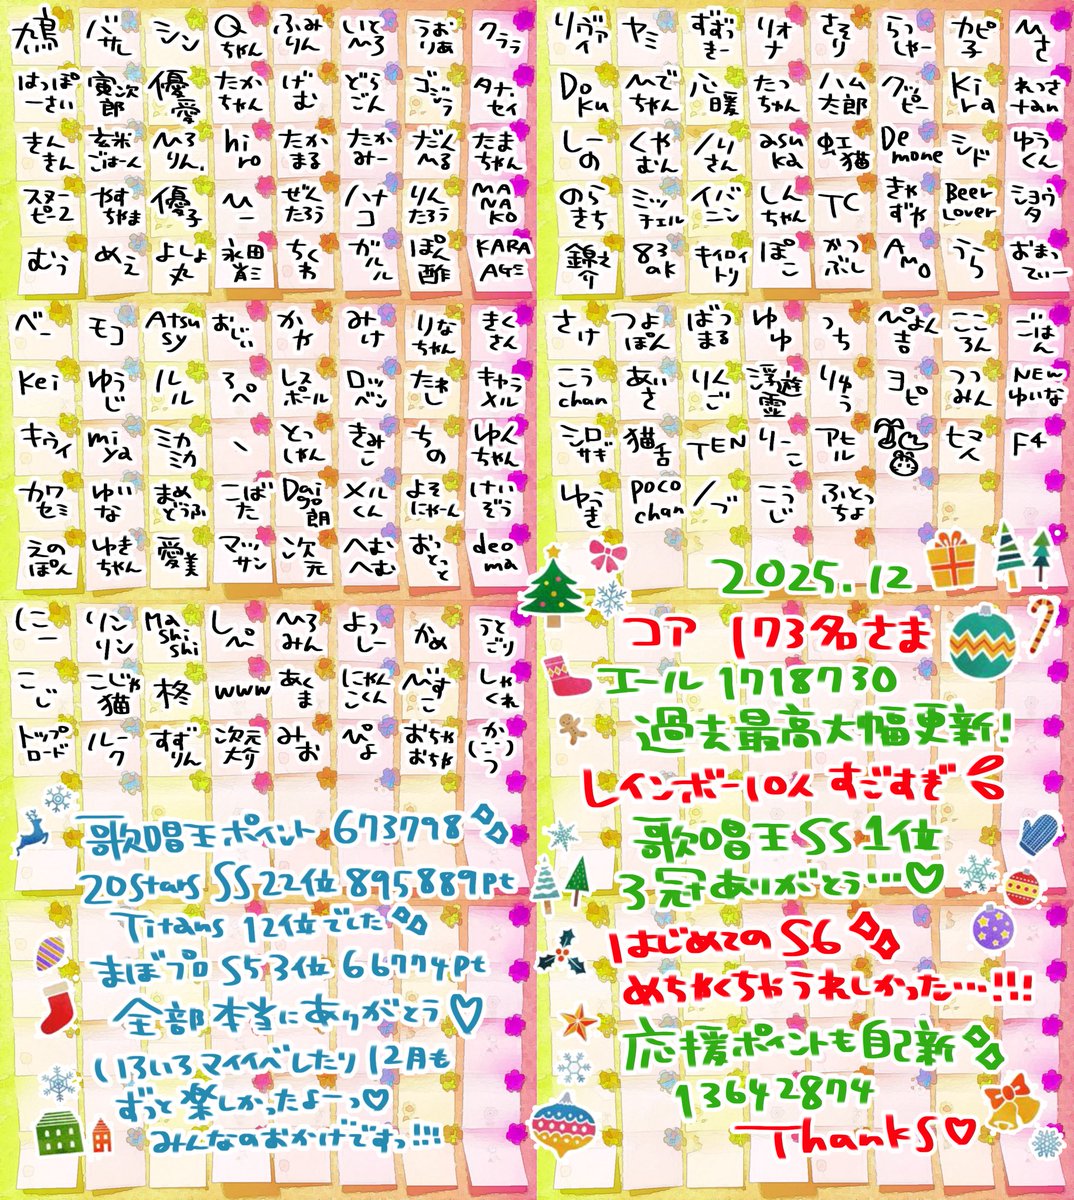 鳩 バサレ シン Qちゃん ふみりん いとひろ うおりあ クララ
はっぽーさい 寅次郎 優愛 たかちゃん げむ どらごん ゴジラ タナ.セイ
きんきん 玄米ごはーん ひろりん. hiro たかまる たかみー だんひる たまちゃん
スヌーピー2 やすちゃま 優子 ひー ぜんたろう ハナコ りんたろう MANAKO
むぅ めぇ よしょ丸 永田 ちくわ ガルル ぽん酢 KARAAGE
リヴァイ ヤミ ずずっきー リオナ さそり らっしゃー カピ子 ひさ
Doku ひでちゃん 心暖 たっちゃん ハム太郎 グッピー Kira れっさtan
しーの くやむん ノリさん asuka 虹猫 Demone シド ゆうくん
のらきち ミッチェル イバニン しんちゃん TC きゃずや Beer Lover ショウタ
錦之介 83ak キイロイトリ ぽこ かつぶし AMO うら おまってぃー
べー モコ Atsussy おじぃ かか みけ りなちゃん きくさん
Kei ゆうじ ルルル ろぺ レスポール ロッベン たれし キャラメル
キウイ miya ミカミカ ヽ とっしゃん きみこ ちの ゆんちゃん
カワセミ ゆいな まめどうふ こばた Daigo朗 メルくん よそにゃーん けいぞう
えのぽん ゆきちゃん 愛美 マッサン 次元 へむへむ おっとっと deoma
さけ つよぽん ばつまる ゆゆ っち ぴよん吉 こころん ごはん
こうchan あいさ りんご 浮遊霊 りゅう ヨピ つつみん NEWゆいな
シロサギ 猫舌 TEN りーこ アヒル ヒマ人 F4
ゆうき pocochan ノブ こうじ ふとっちょ
2025.12
にー リンリン Mashishi しぺ ひろみん よっしー かめ うとごり
こじ こじゃ猫 柊 www あくま にゃんこくん びすこ しゃくれ
トップロード ルーク すずりん 次元大介 みお ぴよ おちゃおちゃ か(..)つ
コア 173名さま
エール 1718730
過去最高大幅更新!
レインボー10人 すごすぎ
歌唱王SS1位
3冠ありがとう…♡
歌唱王ポイント 673798
20Stars SS22位 895889pt
Titans 12位でした
まぼプロ S53位 66774pt
全部本当にありがとう♡
いろいろマイイベしたり12月も
ずっと楽しかったよーっ♡
みんなのおかげですっ!!!
はじめてのS6
めちゃくちゃうれしかった…!!!
応援ポイントも自己新
13642874
Thanks♡